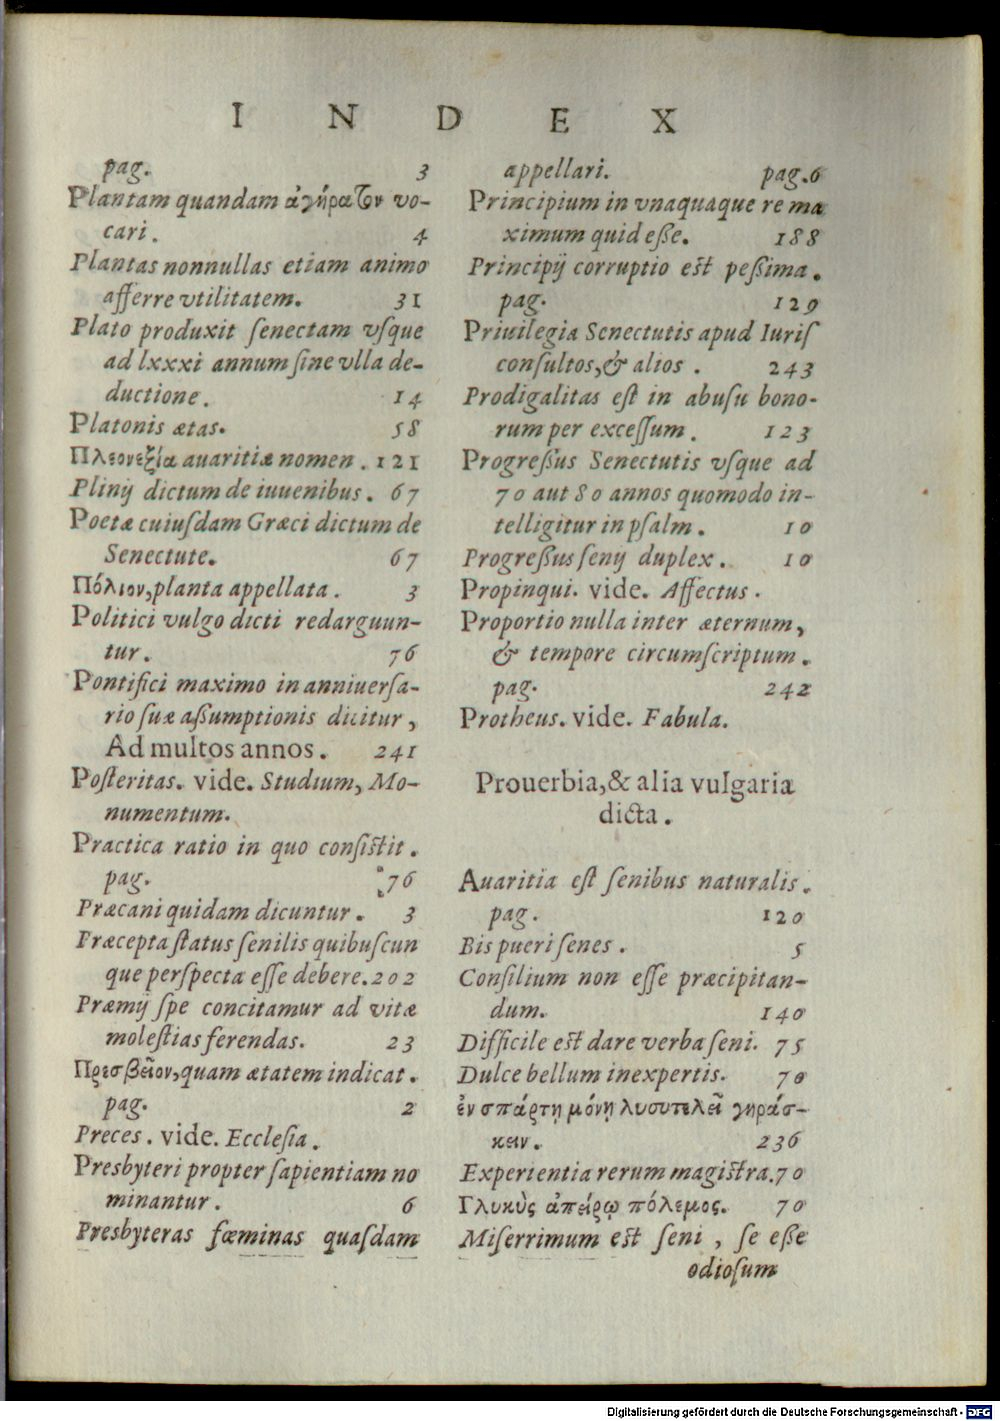 I N D E X
pag. 3
Plantam quandam ἀγήρατον vo-
cari. 4
Plantas nonnullas etiam animo
afferre vtilitatem. 31
Plato produxit ſenectam vſque
ad lxxxi annum ſine vlla de-
ductione. 14
Platonis ætas. 58
Πλεονεξία auaritiæ nomen. 121
Plinij dictum de iuuenibus. 67
Poetæ cuiuſdam Græci dictum de
Senectute. 67
Πόλιον, planta appellata. 3
Politici vulgo dicti redarguun-
tur. 76
Pontifici maximo in anniuerſa-
rio ſuæ aßumptionis dicitur,
Ad multos annos. 241
Poſteritas. vide. Studium, Mo-
numentum.
Practica ratio in quo conſiſtit.
pag. 76
Præcani quidam dicuntur. 3
Præcepta ſtatus ſenilis quibuſcun
que perſpecta eſſe debere. 202
Præmij ſpe concitamur ad vitæ
moleſtias ferendas. 23
Πρεσβεῖον, quam ætatem indicat.
pag. 2
Preces. vide. Eccleſia.
Presbyteri propter ſapientiam no
minantur. 6
Presbyteras fœminas quaſdam
appellari. pag. 6
Principium in vnaquaque re ma
ximum quid eße. 188
Principij corruptio eſt peßima.
pag. 129
Priuilegia Senectutis apud Iuriſ
conſultos, & alios. 243
Prodigalitas eſt in abuſu bono-
rum per exceſſum. 123
Progreßus Senectutis vſque ad
70 aut 80 annos quomodo in-
telligitur in pſalm. 10
Progreßus ſenij duplex. 10
Propinqui. vide. Affectus.
Proportio nulla inter æternum,
& tempore circumſcriptum.
pag. 242
Protheus. vide. Fabula.
Prouerbia, & alia vulgaria
dicta.
Auaritia eſt ſenibus naturalis.
pag. 120
Bis pueri ſenes. 5
Conſilium non eſſe præcipitan-
dum. 140
Difficile eſt dare verba ſeni. 75
Dulce bellum inexpertis. 70
ἐν σπάρτῃ μόνῃ λυσιτελεῖ γηράσ-
κειν. 236
Experientia rerum magiſtra. 70
Γλυκὺς ἀπείρῳ πόλεμος. 70
Miſerrimum eſt ſeni, ſe eße
odioſum
Digitalisierung gefördert durch die Deutsche Forschungsgemeinschaft - DFG